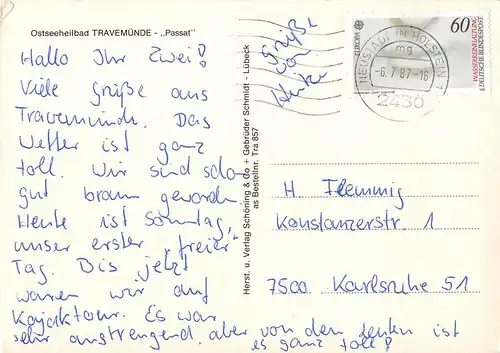 Ostseeheilbad TRAVEMÜNDE - „Passat"
Hallo Ihr Zwei!
Viele Grüße aus
Travemünde. Das
Wetter ist ganz
toll. Wir sind schon
gut braun geworden.
Heute ist Sonntag,
unser erster „freier"
Tag. Bis jetzt
waren wir auf
Kajaktour. Es war
sehr anstrengend, aber von den Leuten ist
es ganz toll!
Grüße
von
Herst. u. Verlag Schöning & Co + Gebrüder Schmidt - Lübeck
as Bestellnr. Tra 857
EUROPA CEPT
60
WASSERREINHALTUNG
DEUTSCHE BUNDESPOST
NEUSTADT IN HOLSTEIN 1
mg
-6.7.87-16
2430
H Flemmig
Konstanzerstr. 1
7500 Karlsruhe 51